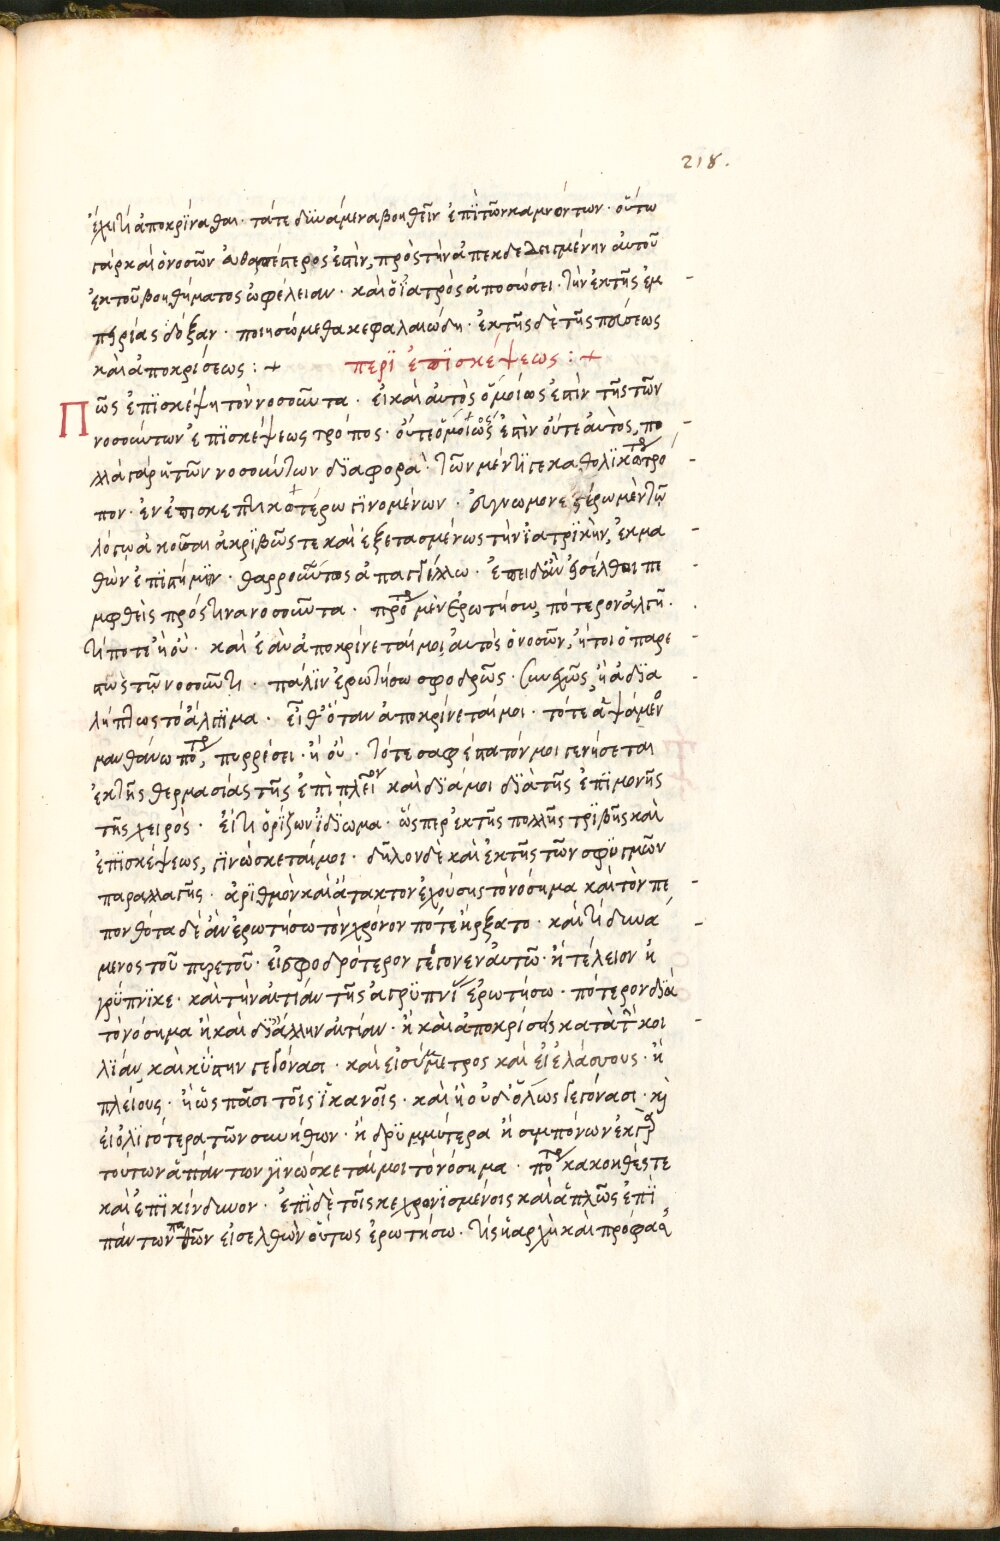 218.
ἔχει τί ἀποκρίνασθαι · τά τε δυνάμενα βοηθεῖν ἐπὶ τῶν καμνόντων · οὕτω
γὰρ καὶ ὁ νοσῶν ἐστιν, πρὸς τὴν αὐτοῦ
ἐκ τοῦ βοηθήματος ὠφέλειαν · καὶ ὁ ἰατρὸς ἀποσώσει · τὴν ἐκ τῆς ἐμ
πηρίας δόξαν · ποιησώμεθα κεφαλαιώδη · ἐκ τῆς δὲ τῆς πεύσεως
καὶ ἀποκρίσεως : + περὶ ἐπϊσκέψεως : +
Πῶς ἐπϊσκέψη τὸν νοσοῦντα · εἰ καὶ αὐτὸς ὁμοίως ἐστὶν τῆς τῶν
νοσούντων ἐπϊσκέψεως τρόπος · οὔτε ὅμοιος ἐστὶν οὔτε αὐτὸς, πο
λλὰ γὰρ ἡ τῶν νοσούντων δϊαφορά · τῶν μέν τϊ γε καθολϊκῶ τρό
πον · ἐν ἐπισκεπτικοτέρω γϊνομένων · ἐρῶ μὲν τῶ
λόγω ἀκοῦσαι ἀκριβῶς τε καὶ ἐξετασμένως τὴν ἰατρϊκὴν, ἐκμα
θὼν ἐπϊστήμην · θαρρούντως ἀπαγγέλλω · ἐπειδὰν εἰσέλθοι πε
μφθεὶς πρός τινα νοσοῦντα · πρότερ μὲν ἐρωτήσω, πότερον ἀλγῆ ·
τί ποτε ἢ οὔ · καὶ ἐὰν ἀποκρίνεταί μοι, αὐτὸς ὁ νοσῶν, ἤτοι ὁ παρε
στὼς τῷ νοσοῦντι · πάλϊν ἐρωτήσω σφοδρῶς · συνεχῶς, ἢ ἀδϊα
λήπτως τὸ ἄλγημα · εἶθ' ὅταν ἀποκρίνεταί μοι · τότε ἁψάμενο
μανθάνω πότερ, πυρρέσει · ἢ οὔ · τότε σαφέστατόν μοι γενήσεται
ἐκ τῆς θερμασίας τῆς ἐπὶ πλεῖον καὶ δϊά μοι δϊὰ τῆς ἐπϊμονῆς
τῆς χειρός · εἴ τι ὁρίζων ἰδίωμα · ὥσπερ ἐκ τῆς πολλῆς τρϊβῆς καὶ
ἐπϊσκέψεως, γϊνώσκεταί μοι · δῆλον δὲ καὶ ἐκ τῆς τῶν σφυγμῶν
παραλλαγῆς · ἀρϊθμὸν καὶ ἄτακτον ἐχούσης τὸ νόσημα καὶ τὸν πε
πονθότα δὲ ἀν ἐρωτήσω τὸν χρόνον πότε ἤρξατο · καὶ τί δυνά
μενος τοῦ πυρετοῦ · εἰ σφοδρότερον γέγονεν αὐτῶ · ἢ τέλειον ἢ
γρύπνϊκε · καὶ τὴν αἰτίαν τῆς ἀγρϋπνΐ ἐρωτήσω · πότερον δϊὰ
τὸ νόσημα ἢ καὶ δϊ' ἄλλην αἰτίαν · ἢ καὶ ἀποκρίσης κατὰ τὴν κοι
λΐαν, καὶ κύστην γεγόνασι · καὶ εἰ σύμμετρος καὶ εἰ ἐλάσσους · ἢ
πλείους · ἢ ὡς πᾶσι τοῖς ἱκανοῖς · καὶ ἢ οὐδ' ὅλως γεγόνασι · κὶ
εἰ ὀλϊγότερα τῶν συνήθων · ἢ δρϊμμύτερα ἢ σιμπόνων ἐκ γὰρ
τούτων ἁπάντων γϊνώσκεταί μοι τὸ νόσημα · πότερ κακοηθές τε
καὶ ἐπϊκίνδυνον · ἐπϊ δὲ τοῖς κεχρονϊσμένοις καὶ ἁπλῶς ἐπῒ
πάντων παθῶν εἰσελθὼν οὕτως ἐρωτήσω · τίς ἡ ἀρχὴ καὶ πρόφασ